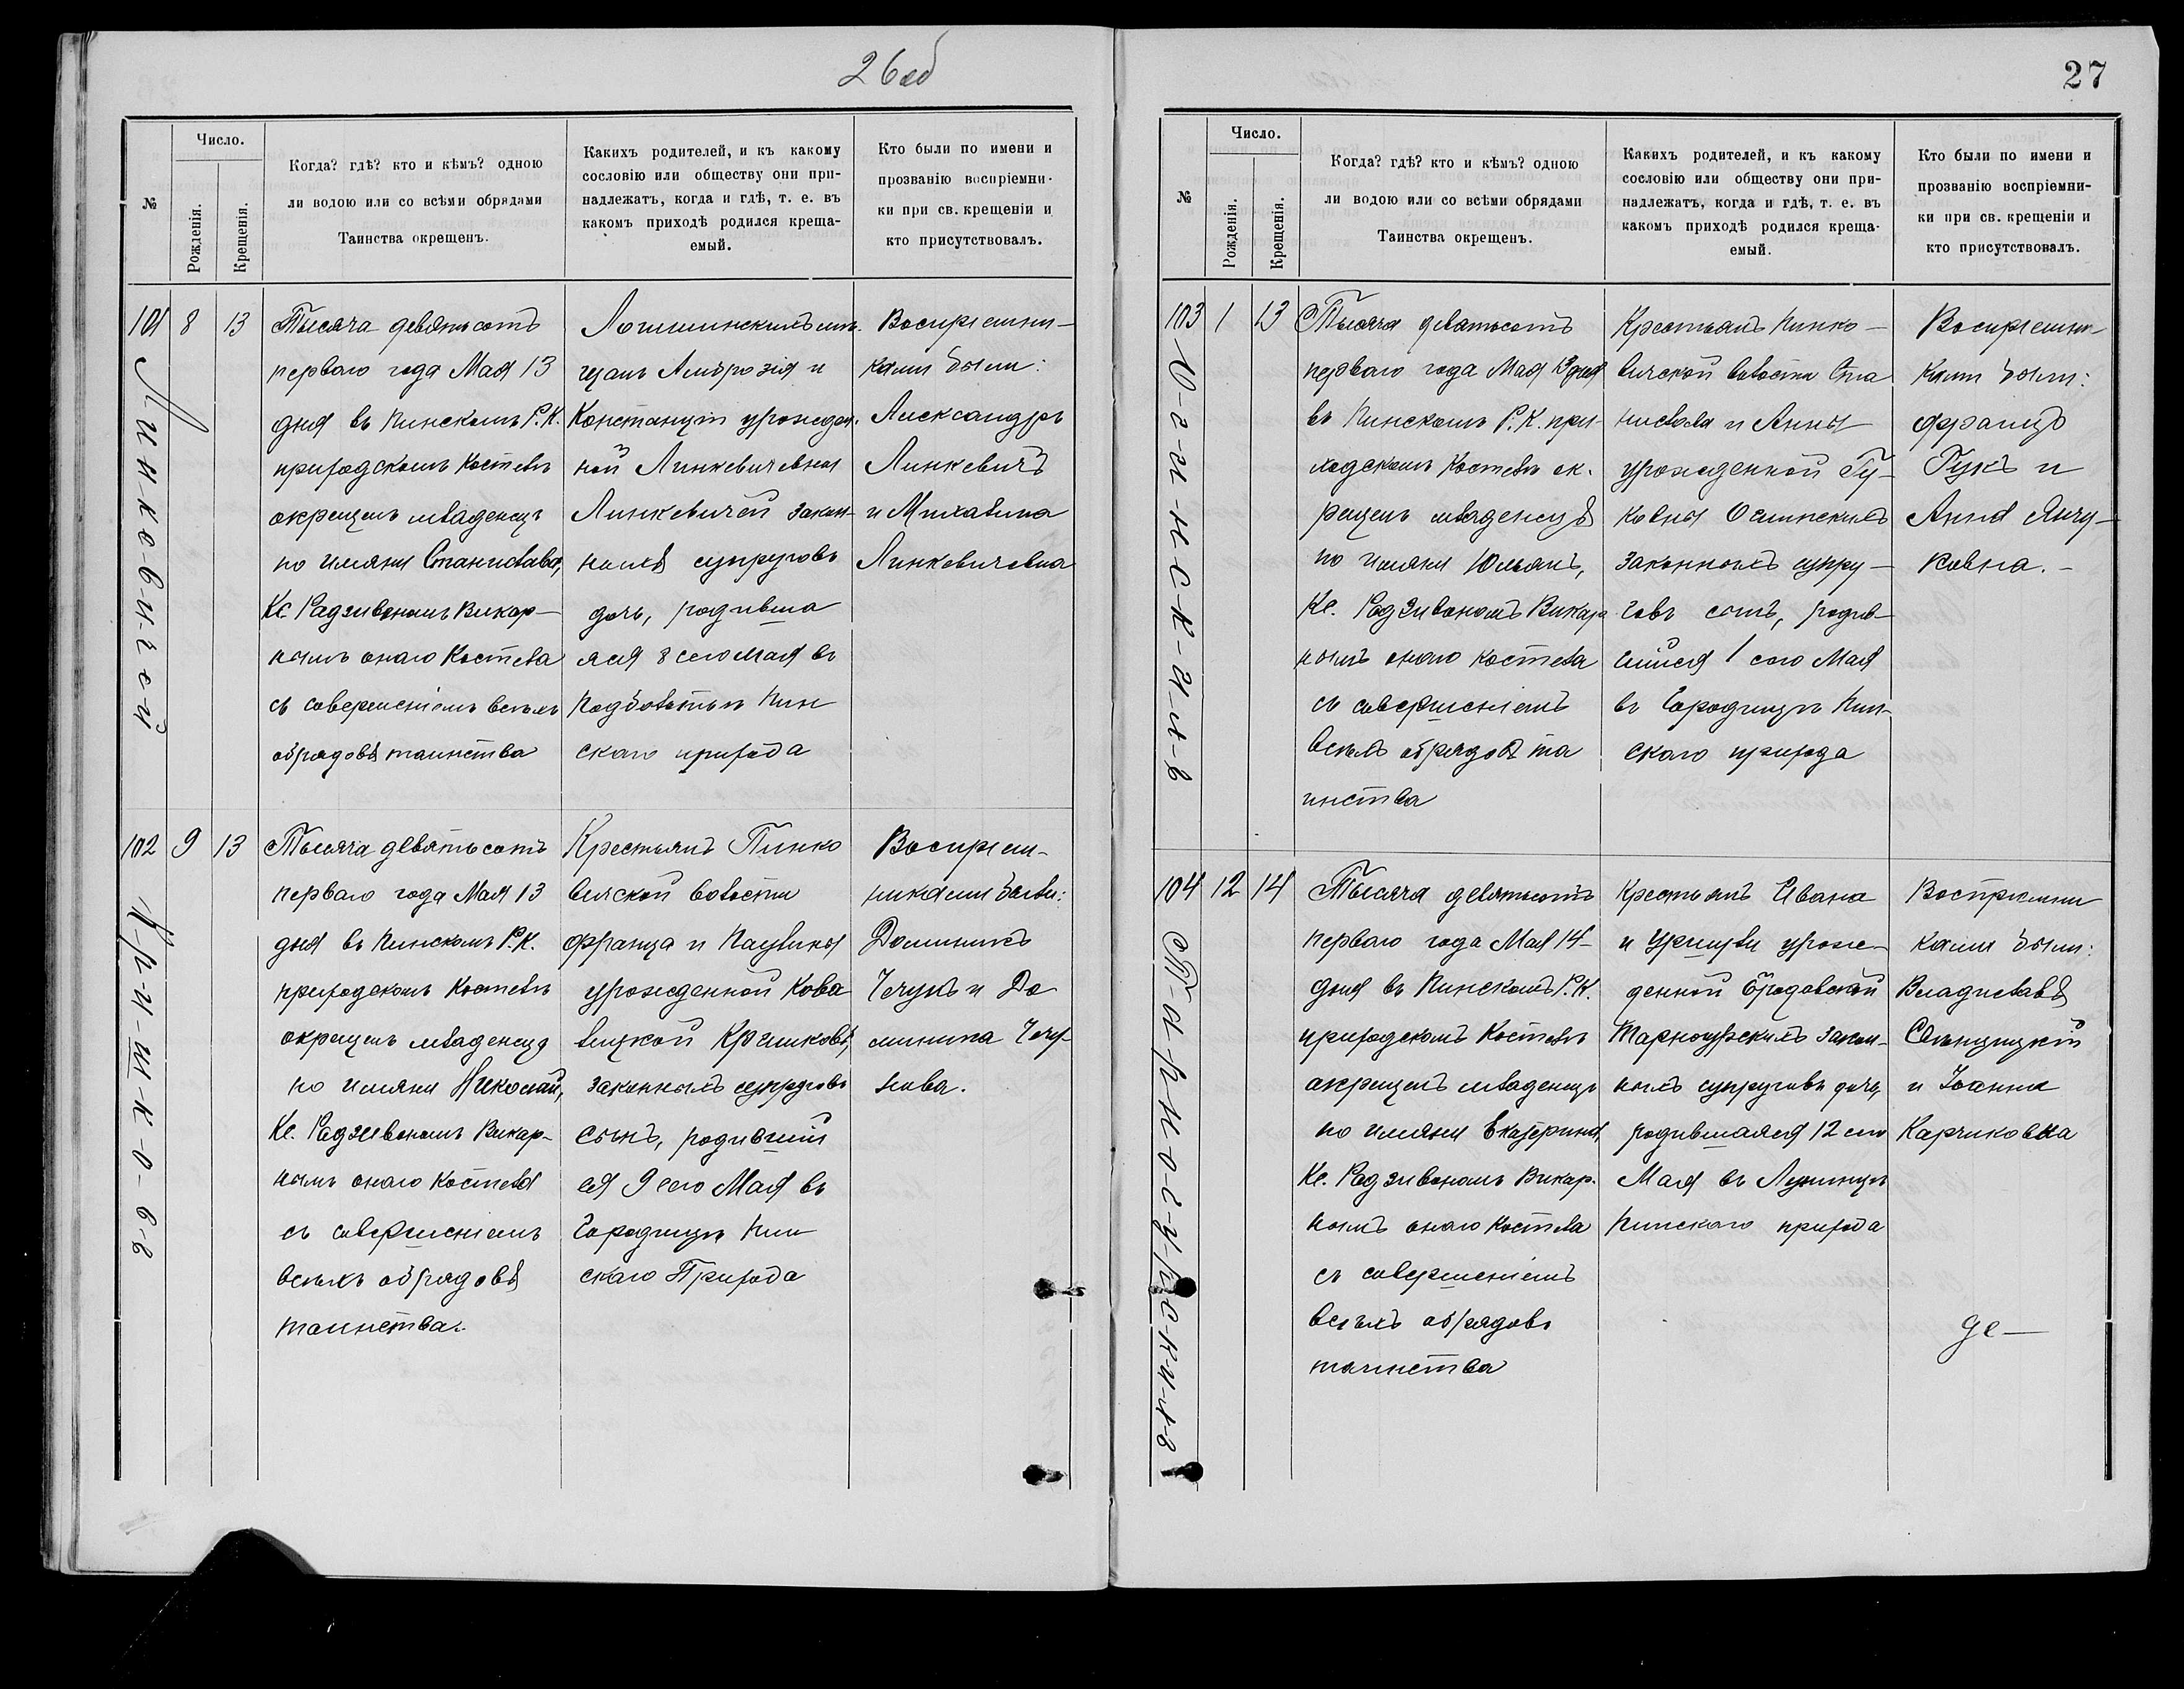 26об
№
Число.
Рожденія.
Крещенія.
Когда? гдѣ? кто и кѣмъ? одною
ли водою или со всѣми обрядами
Таинства окрещенъ.
Какихъ родителей, и къ какому
сословію или обществу они при-
надлежатъ, когда и гдѣ, т. е. въ
какомъ приходѣ родился креща-
емый.
Кто были по имени и
прозванію воспріемни-
ки при св. крещеніи и
кто присутствовалъ.
101
8
13
Тысяча девятьсотъ
перваго года Мая 13
дня въ Пинскомъ Р. К.
приходскомъ Костелѣ
окрещенъ младенецъ
по имяни Станислава,
Кс. Радзивономъ Викар-
нымъ онаго Костела
съ совершеніемъ всѣхъ
обрядовъ таинства
Логишинскихъ мѣ-
щанъ Амброзія и
Констанціи урожден-
ной Линкевичевны
Линкевичей закон-
ныхъ супруговъ
дочь, родивша
яся 8 сего Мая въ
Подболотьѣ Пин
скаго прихода
Воспріемни-
ками были:
Александръ
Линкевичъ
и Михалина
Линкевичевна
102
9
13
Тысяча девятьсотъ
перваго года Мая 13
дня въ Пинскомъ Р. К.
приходскомъ Костелѣ
окрещенъ младенецъ
по имяни Николай,
Кс. Радзивономъ Викар-
нымъ онаго Костела
съ совершеніемъ
всѣхъ обрядовъ
таинства.
Крестьянъ Пинко
вичской волости
Франца и Паулины
урожденной Кова
левской Кришковъ,
законныхъ супруговъ
сынъ, родившій
ся 9 сего Мая въ
Городищѣ Пин
скаго Прихода
Воспріем-
никами были:
Доминикъ
и До
миника
27
№
Число.
Рожденія.
Крещенія.
Когда? гдѣ? кто и кѣмъ? одною
ли водою или со всѣми обрядами
Таинства окрещенъ.
Какихъ родителей, и къ какому
сословію или обществу они при-
надлежатъ, когда и гдѣ, т. е. въ
какомъ приходѣ родился креща-
емый.
Кто были по имени и
прозванію воспріемни-
ки при св. крещеніи и
кто присутствовалъ.
103
1
13
Тысяча девятьсотъ
перваго года Мая 13 дня
въ Пинскомъ Р. К. при-
ходскомъ Костелѣ ок-
рещенъ младенецъ
по имяни Юльянъ,
Кс. Радзивономъ Викар
нымъ онаго костела
съ совершеніемъ
всѣхъ обрядовъ та
инства
Крестьянъ Пинко-
вичской волости Ста
нислава и Анны
урожденной Гу-
ковны Осинскихъ
законныхъ супру-
говъ сынъ, родив-
шійся 1 сего Мая
въ Городищѣ Пин-
скаго прихода
Воспріемни
ками были:
Францъ
Гукъ и
Анна Янчу-
ковна.-
104
12
14
Тысяча девятьсотъ
перваго года Мая 14-
дня въ Пинскомъ Р. К.
приходскомъ Костелѣ
окрещенъ младенецъ
по имяни Екатерина,
Кс. Радзивономъ Викар-
нымъ онаго Костела
съ совершеніемъ
всѣхъ обрядовъ
таинства
Крестьянъ Ивана
и Уршули урож-
денной Бродовской
Тарногурскихъ закон-
ныхъ супруговъ дочь,
родившаяся 12 сего
Мая въ Лунинцѣ
Пинскаго прихода
Воспріемни
ками были:
Владиславъ
Свенцицкій
и Іоанна
Карчиковна
де-
Линкевичей
Кришковъ
Осинскихъ
Тарногурскихъ